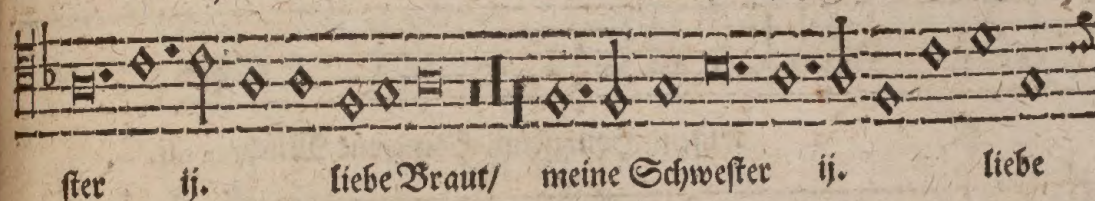 ster ij. liebe Braut/ meine Schwester ij. liebe